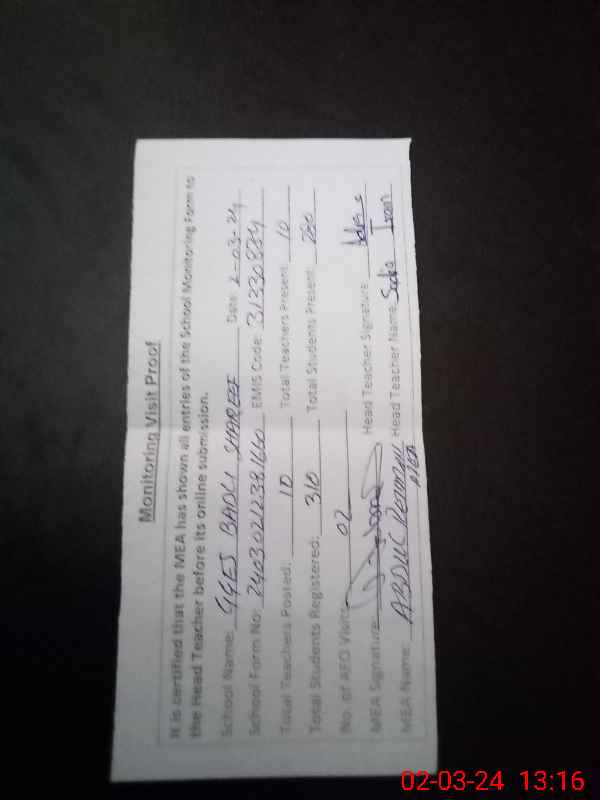 Monitoring Visit Proof
It is certified that the MEA has shown all entries of the School Monitoring Form to
the Head Teacher before its online submission.
School Name: GGES BADLI SHAREEF Date: 2-03-24
School Form No: 24030212381660 EMIS Code: 31330884
Total Teachers Posted: 10 Total Teachers Present: 10
Total Students Registered: 310 Total Students Present: 280
No. of AEO Visits: 02
MEA Signature: Head Teacher Signature:
MEA Name: ABDUL Head Teacher Name: Sadia
02-03-24 13:16